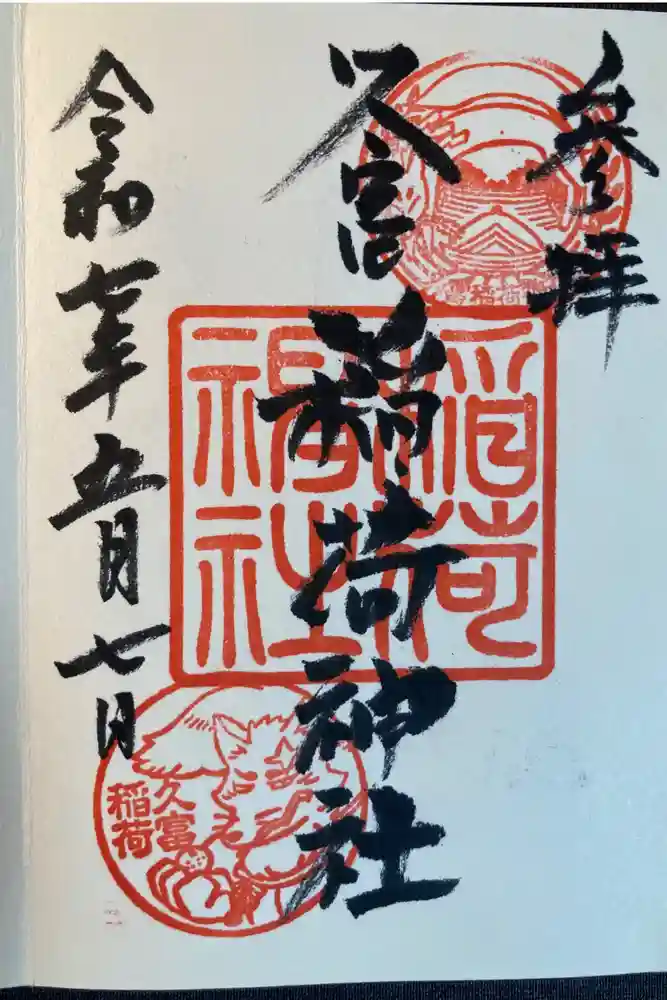 参拝
久富稲荷神社
令和七年五月七日
稲荷
稲荷
神社
久富
稲荷